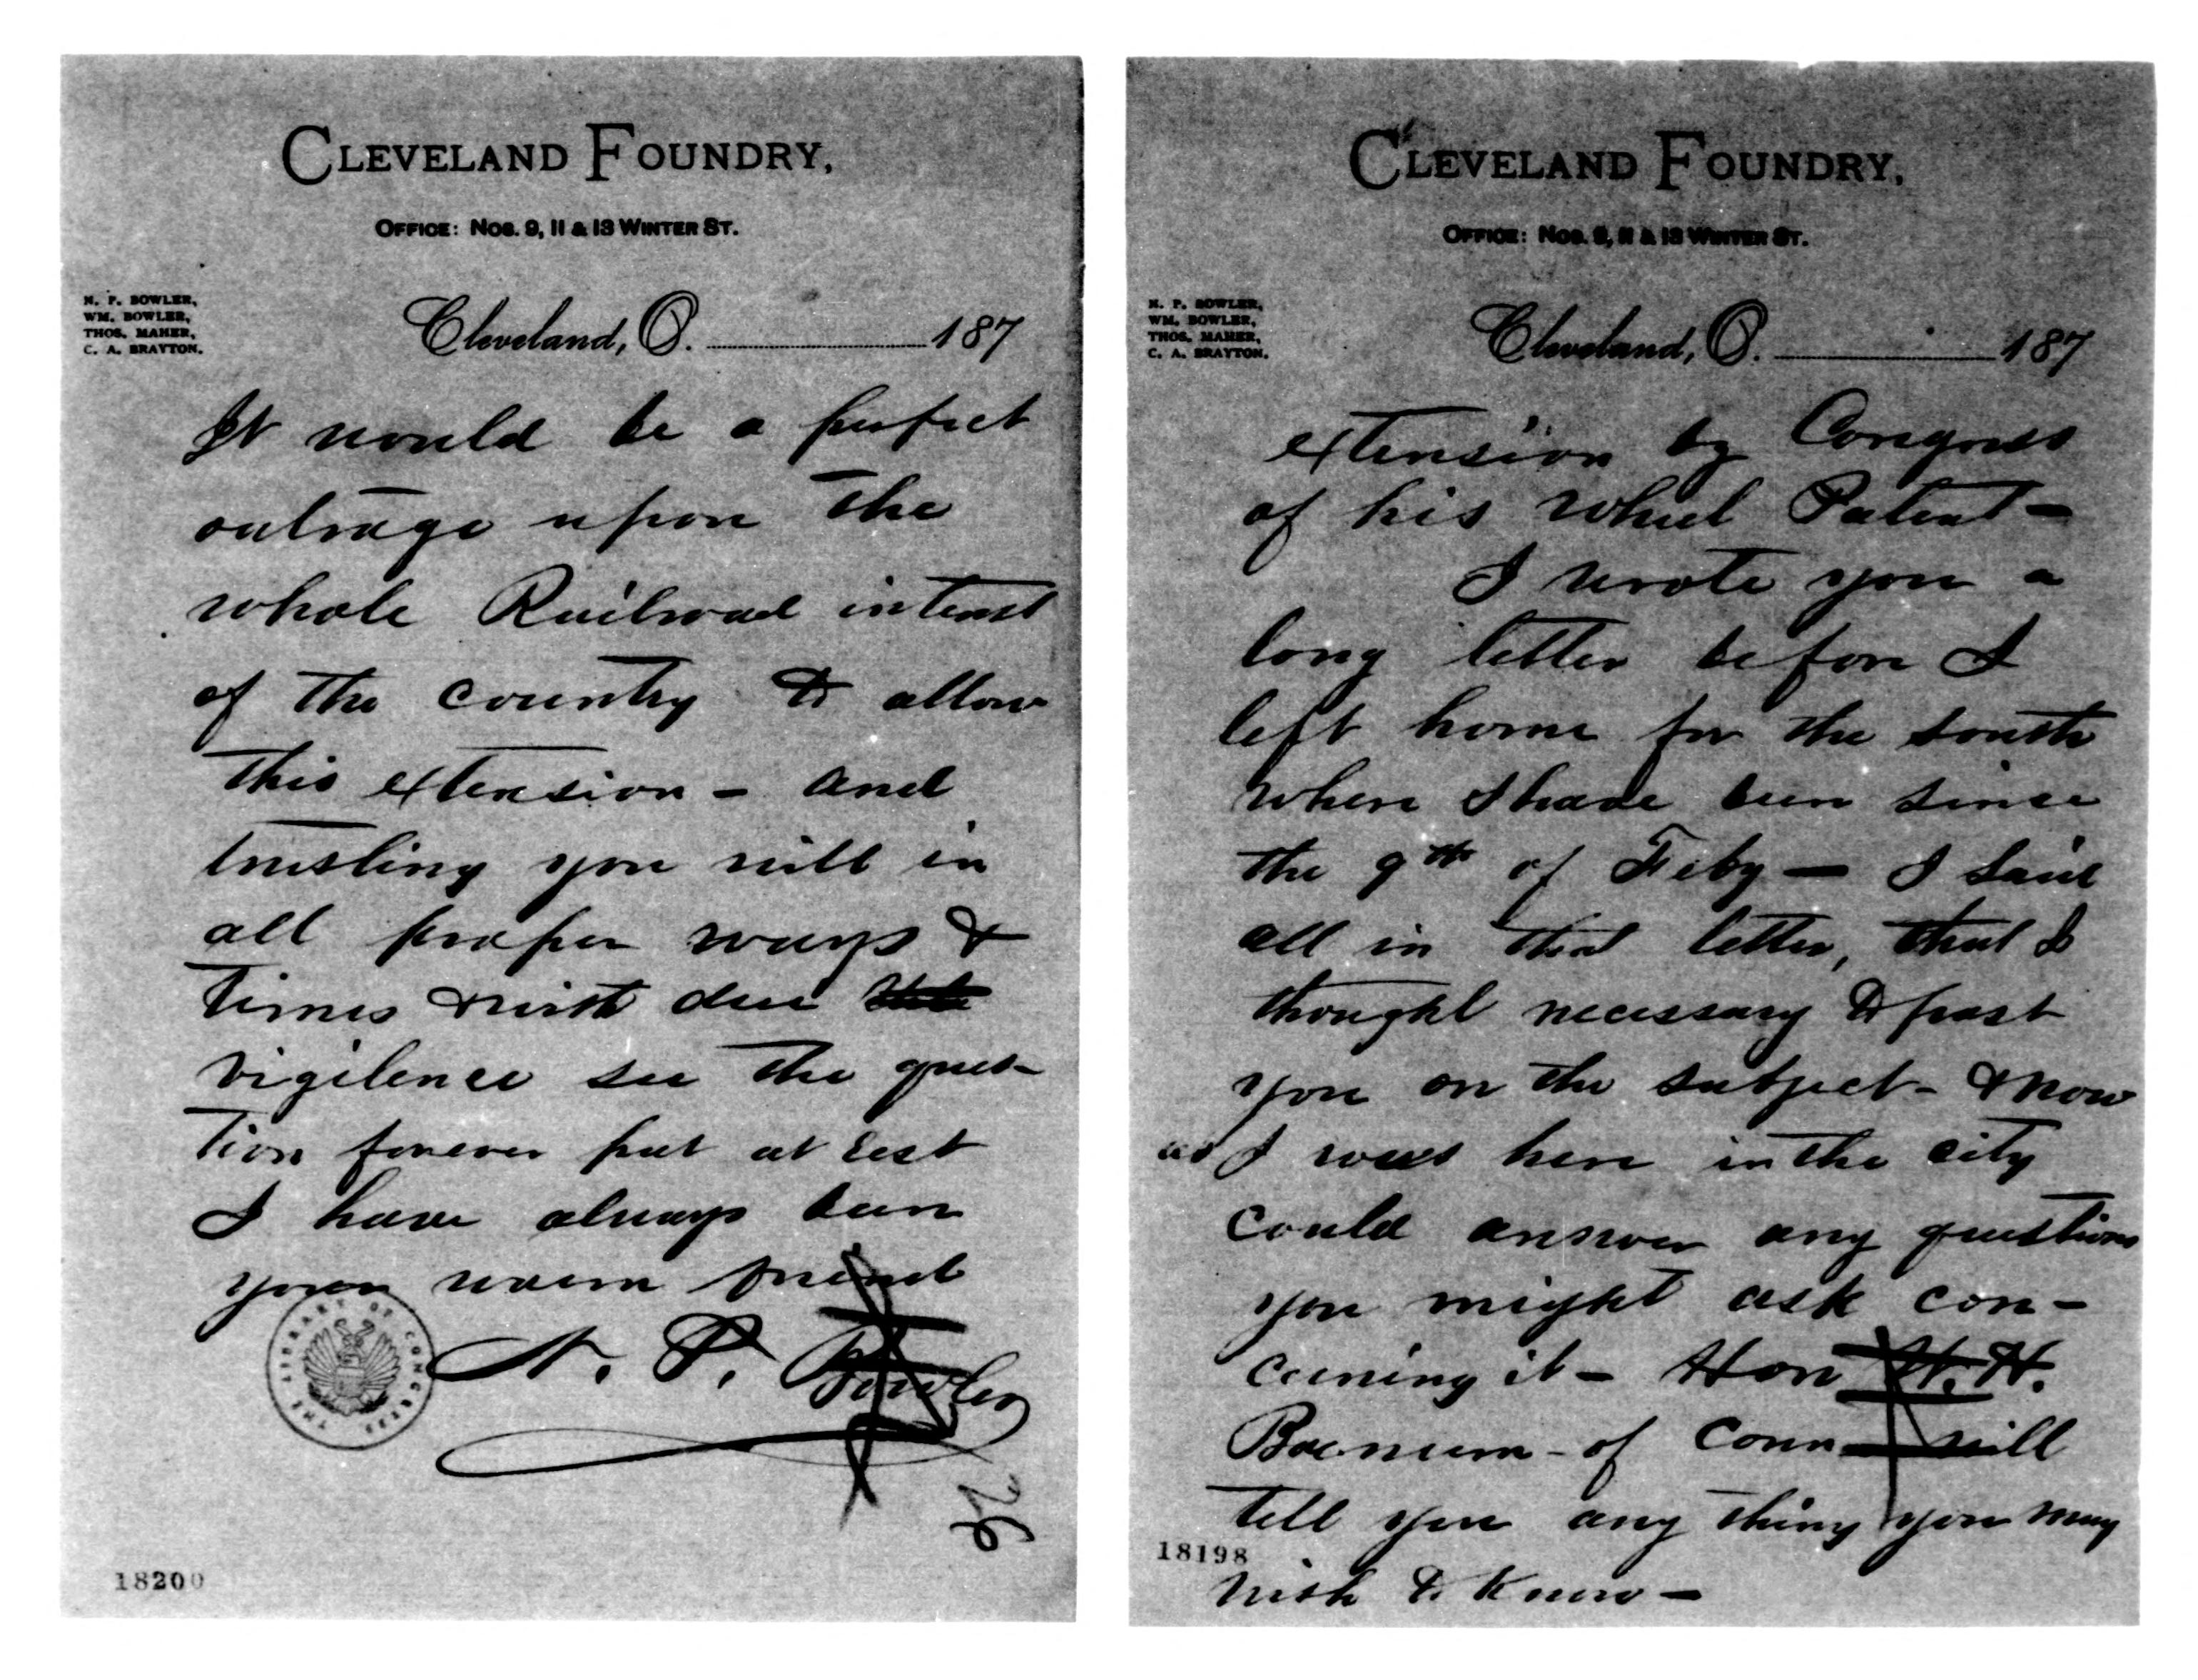 CLEVELAND FOUNDRY,
OFFICE: NOS. 9, 11 & 13 WINTER ST.
N. P. BOWLER,
WM. BOWLER,
THOS. MAHER,
C. A. BRAYTON.
Cleveland, O. 187
It would be a perfect
outrage upon the
whole Railroad interest
of the country to allow
this extension - and
trusting you will in
all proper ways &
times & with due
vigilence see the ques-
tion forever put at rest
I have always been
your warm friend
N. P. Bowler
THE LIBRARY OF CONGRESS
18200
CLEVELAND FOUNDRY,
OFFICE: NOS. 9, 11 & 13 WINTER ST.
N. P. BOWLER,
WM. BOWLER,
THOS. MAHER,
C. A. BRAYTON.
Cleveland, O. 187
extension by Congress
of his wheel Patent -
I wrote you a
long letter before I
left home for the south
where I have been since
the 9th of Feby — I said
all in that letter, that I
thought necessary to post
you on the subject - & now
as I was here in the city
could answer any questions
you might ask con-
cerning it - Hon W. H.
Barnum - of Conn will
tell you any thing you may
18198
wish to know -